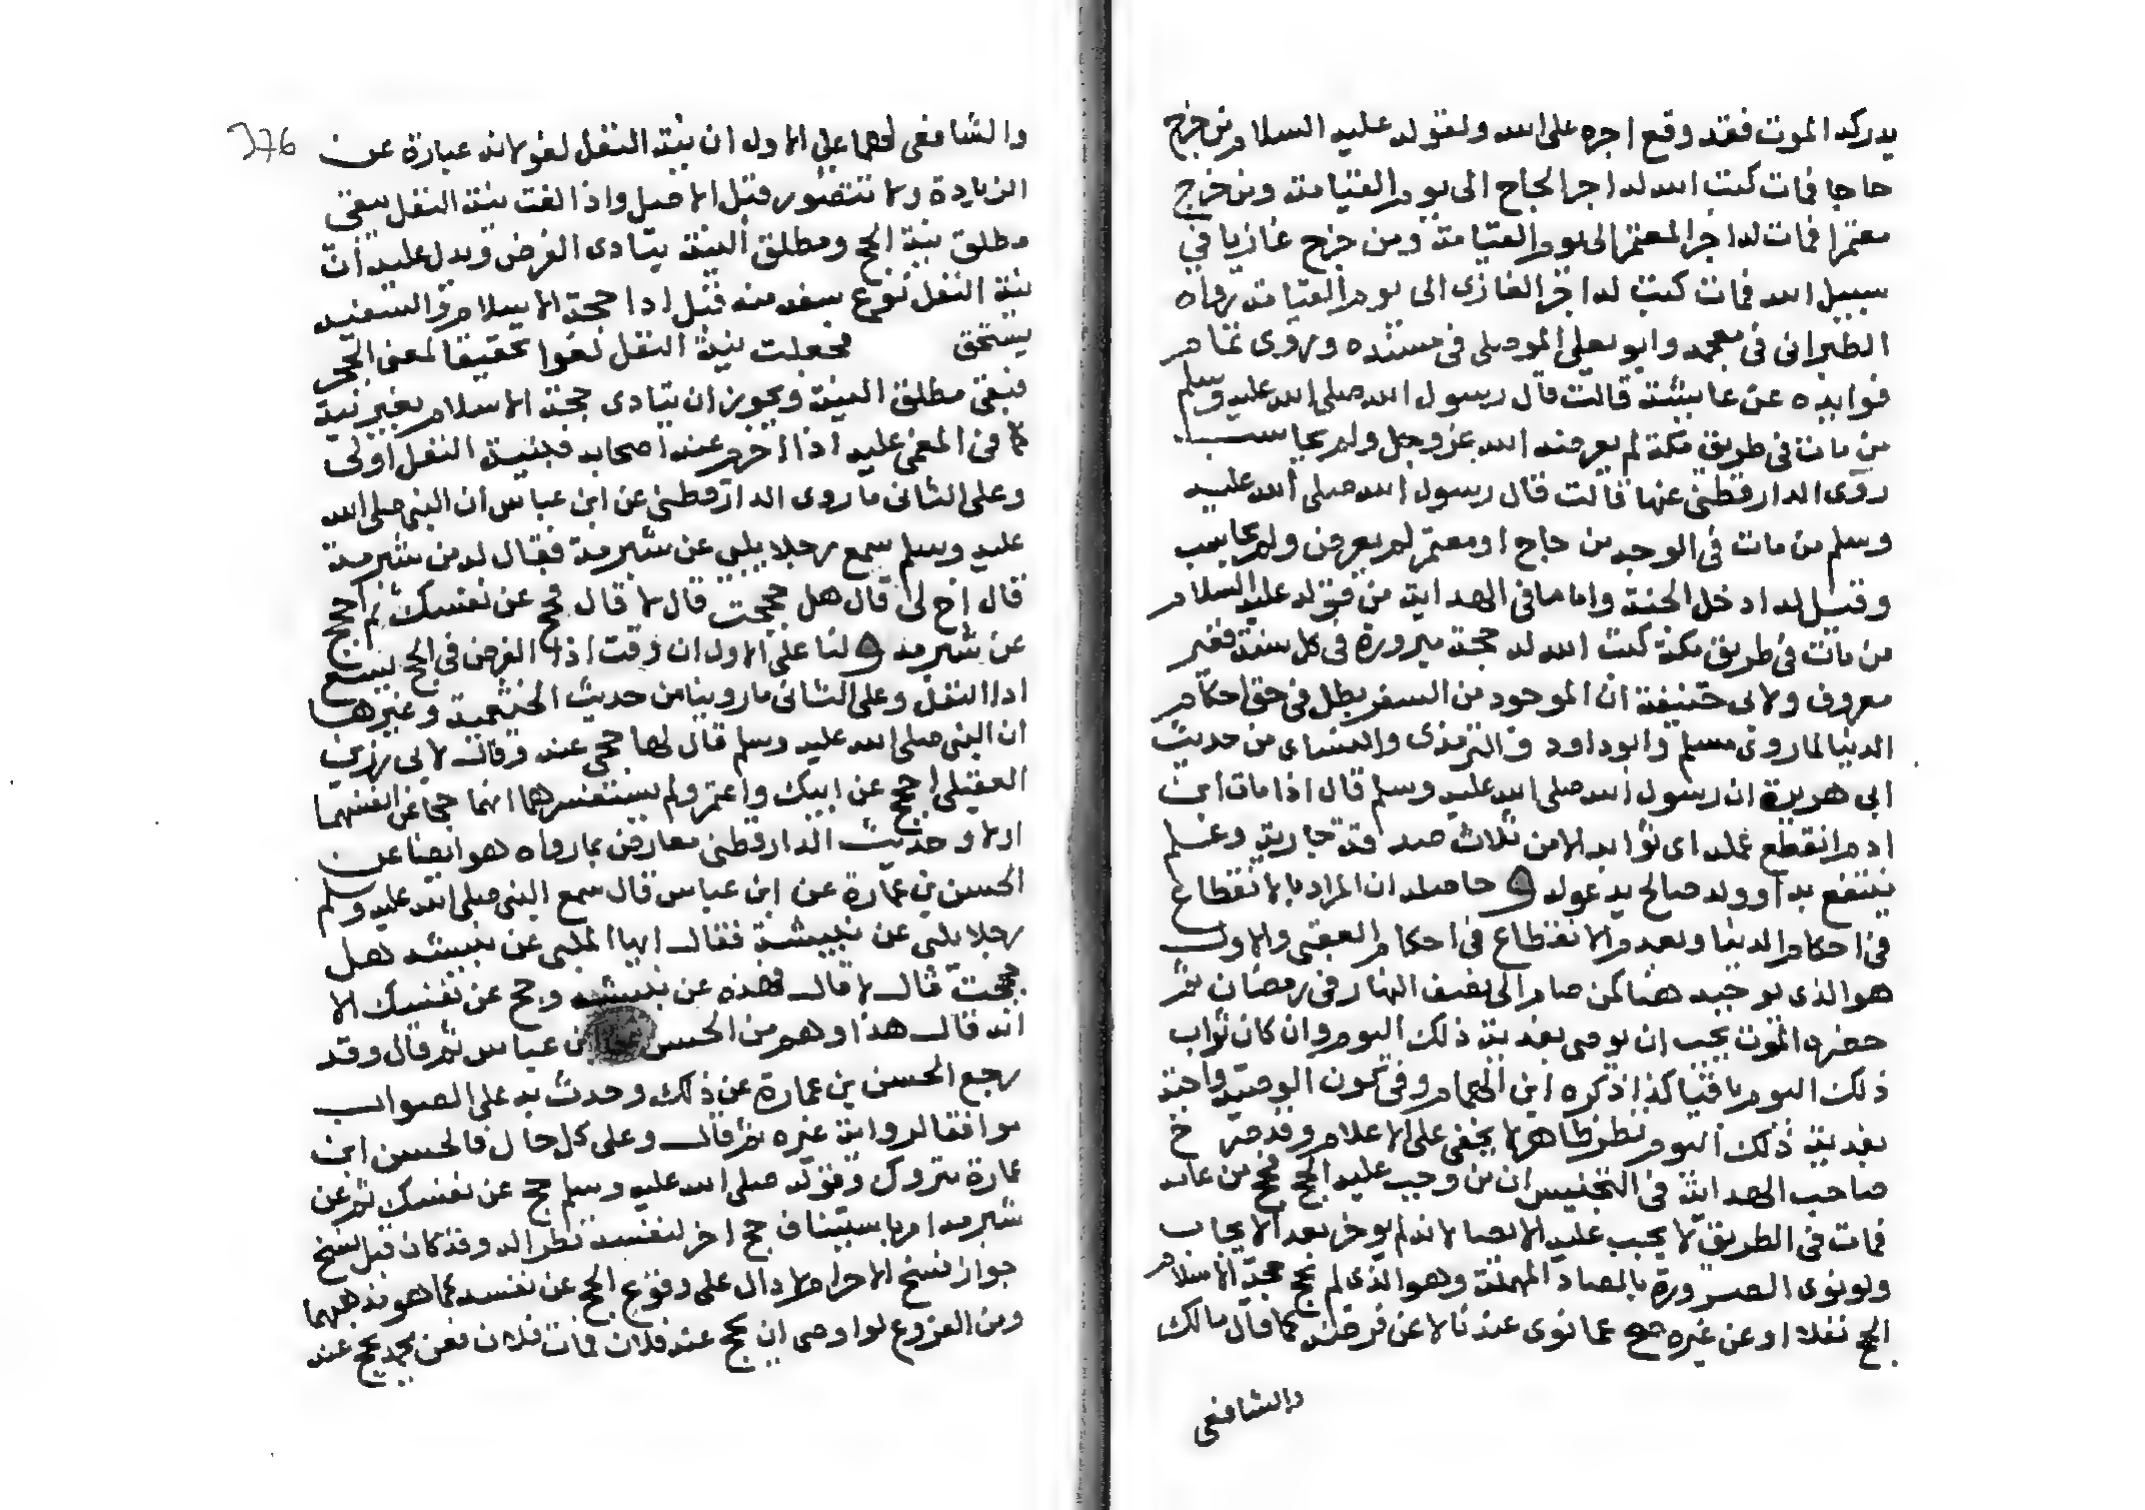 يدركه الموت فقد وقع اجره على الله ولقوله عليه السلام من خرج
حاجا فمات كتب الله له اجر الحاج الى يوم القيامة ومن خرج
معتمرا فمات له اجر المعتمر الى يوم القيامة ومن خرج غازيا في
سبيل الله فمات كتب له اجر الغازى الى يوم القيامة رواه
الطبرانى فى معجمه وابو يعلى الموصلى فى مسنده وروى تمام
فوايده عن عايشة قالت قال رسول الله صلى الله عليه وسلم
من مات فى طريق مكة لم يعرضه الله عز وجل ولم يحاسب
روى الدارقطنى عنها قالت قال رسول الله صلى الله عليه
وسلم من مات فى الوجه من حاج او معتمر لم يعرض ولم يحاسب
وقيل له ادخل الجنة واما ما فى الهداية من قوله عليه السلام
من مات فى طريق مكة كتب الله له حجة مبرورة فى كل سنة فغير
معروف ولابى حنيفة ان الموجود من السفر بطل فى حق احكام
الدنيا لما روى مسلم وابو داود والترمذى والنساى من حديث
ابى هريرة ان رسول الله صلى الله عليه وسلم قال اذا مات ابن
ادم انقطع عمله اى ثوابه الا من ثلاث صدقة جارية وعلم
ينتفع به او ولد صالح يدعو له و حاصله ان المراد بالانقطاع
فى احكام الدنيا وبعدم الانقطاع فى احكام العقبى والاول
هو الذى يوجبه هنا كمن صام الى نصف النهار فى رمضان ثم
حضره الموت يجب ان يوصى بفدية ذلك اليوم وان كان ثواب
ذلك اليوم باقيا كذا ذكره ابن الهمام وفى كون الوصية واجبة
بفدية ذلك اليوم نظر ظاهر لا يخفى على الاعلام وقد صرح
صاحب الهداية فى التجنيس ان من وجب عليه الحج فحج من عامه
فمات فى الطريق لا يجب عليه الايصا لانه لم يوخر بعد الايجاب
ولو نوى الصرورة بالصاد المهملة وهو الذى لم يحج حجة الاسلام
الحج نفلا او عن غيره صح عما نوى عندنا لا عن فرضه كما قال مالك
والشافعى
376
والشافعى لهما على الاول ان نية النفل لغو لانه عبارة عن
الزيادة ولا تتصور قبل الاصل واذا لغت نية النفل يبقى
مطلق نية الحج ومطلق النية يتادى الفرض ويدل عليه ان
نية النفل نوع سفه منه قبل ادا حجة الاسلام والسفيه
يستحق فجعلت نية النفل لغوا تحقيقا لمعنى الحجر
فبقى مطلق النية ويجوز ان يتادى حجة الاسلام بغير نية
كما فى المغمى عليه اذا احرم عنه اصحابه فبنية النفل اولى
وعلى الثانى ما روى الدارقطنى عن ابن عباس ان النبى صلى الله
عليه وسلم سمع رجلا يلبى عن شبرمة فقال له من شبرمة
قال اخ لى قال هل حججت قال لا قال حج عن نفسك ثم احجج
عن شبرمه و لنا على الاول ان وقت ادا الفرض فى الحج يسع
ادا النفل وعلى الثانى ما روينا من حديث الخثعمية وغيرها
ان النبى صلى الله عليه وسلم قال لها حجى عنه وقال لابى رزين
العقيلى احجج عن ابيك واعتمر ولم يستفسرهما انهما حجا عن انفسهما
اولا و حديث الدارقطنى معارض بما رواه هو ايضا عن
الحسن بن عمارة عن ابن عباس قال سمع النبى صلى الله عليه وسلم
رجلا يلبى عن نبيشة فقال ايها الملبى عن نبيشه هل
حججت قال لا قال فهذه عن نبيشه وحج عن نفسك الا
انه قال هذا وهم من الحسن ابن عباس ثم قال وقد
رجع الحسن بن عمارة عن ذلك وحدث به على الصواب
موافقا لرواية غيره ثم قال وعلى كل حال فالحسن ابن
عمارة متروك وقوله صلى الله عليه وسلم حج عن نفسك ثم عن
شبرمه امر باستيناف حج اخر لنفسه نظرا له وقد كان قبل نسخ
جواز نسخ الاحرام لا دال على وقوع الحج عن نفسه كما هو مذهبهما
ومن الفروع لو اوصى ان يحج عنه فلان فمات فلان فعن محمد يحج عنه